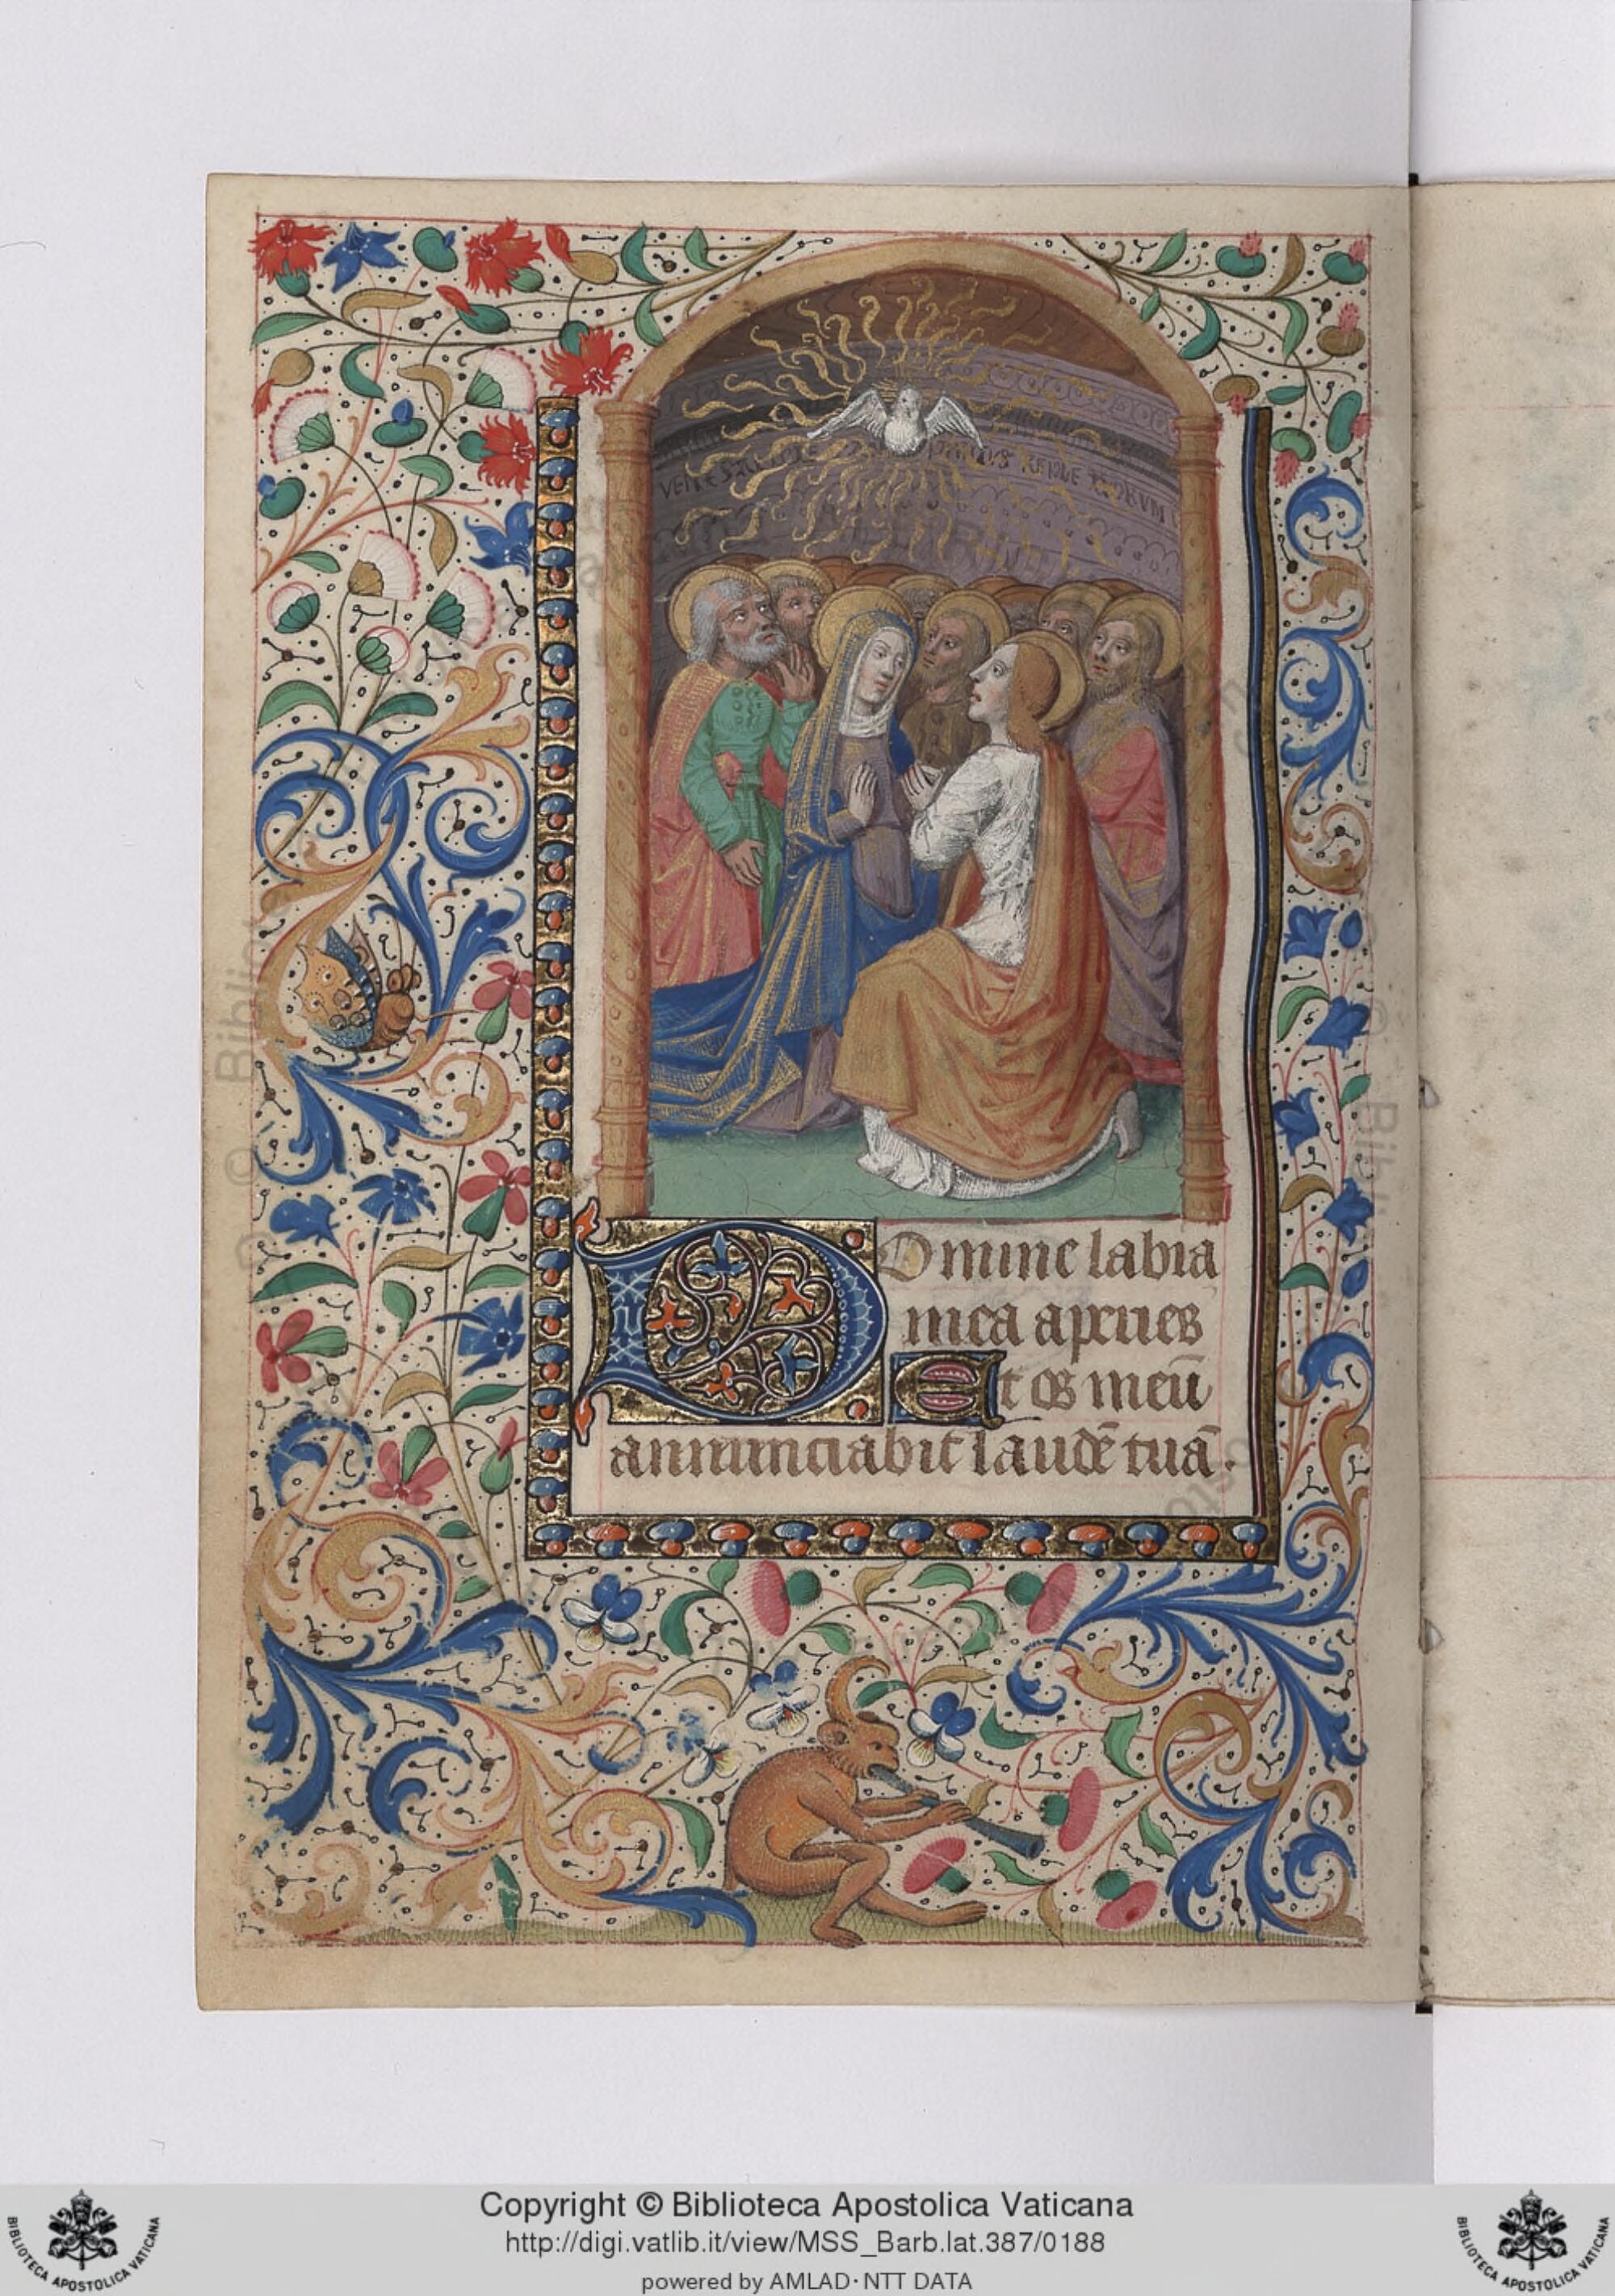 VENI SANCTE
Domine labia
mea aperies
Et os meū
annunciabit laudē tuā.
Copyright © Biblioteca Apostolica Vaticana
http://digi.vatlib.it/view/MSS_Barb.lat.387/0188
powered by AMLAD · NTT DATA
BIBLIOTECA APOSTOLICA VATICANA
BIBLIOTECA APOSTOLICA VATICANA